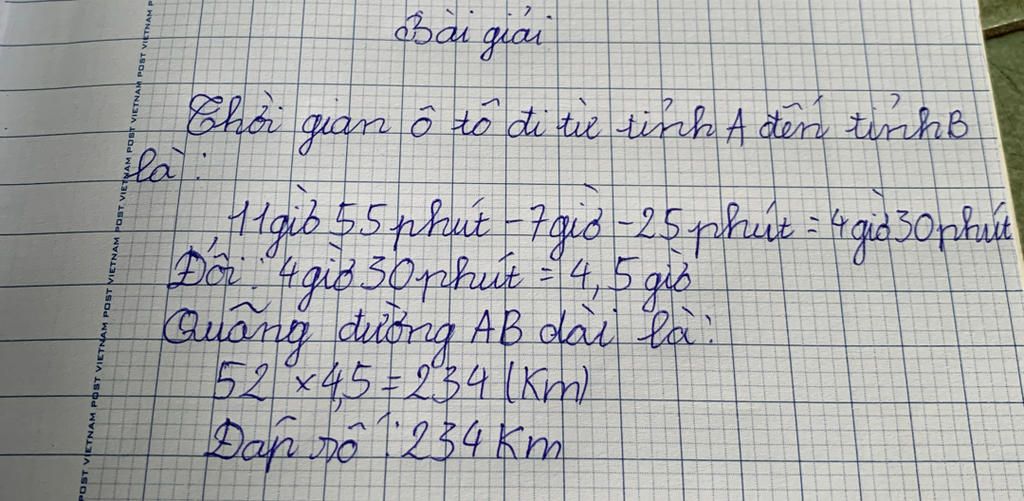 Bài giải
Thời gian ô tô đi từ tỉnh A đến tỉnh B
là:
11 giờ 55 phút - 7 giờ - 25 phút = 4 giờ 30 phút
Đổi: 4 giờ 30 phút = 4,5 giờ
Quãng đường AB dài là:
52 × 4,5 = 234 (Km)
Đáp số: 234 Km
POST VIETNAM POST VIETNAM POST VIETNAM POST VIETNAM POST VIETNAM POST VIETNAM